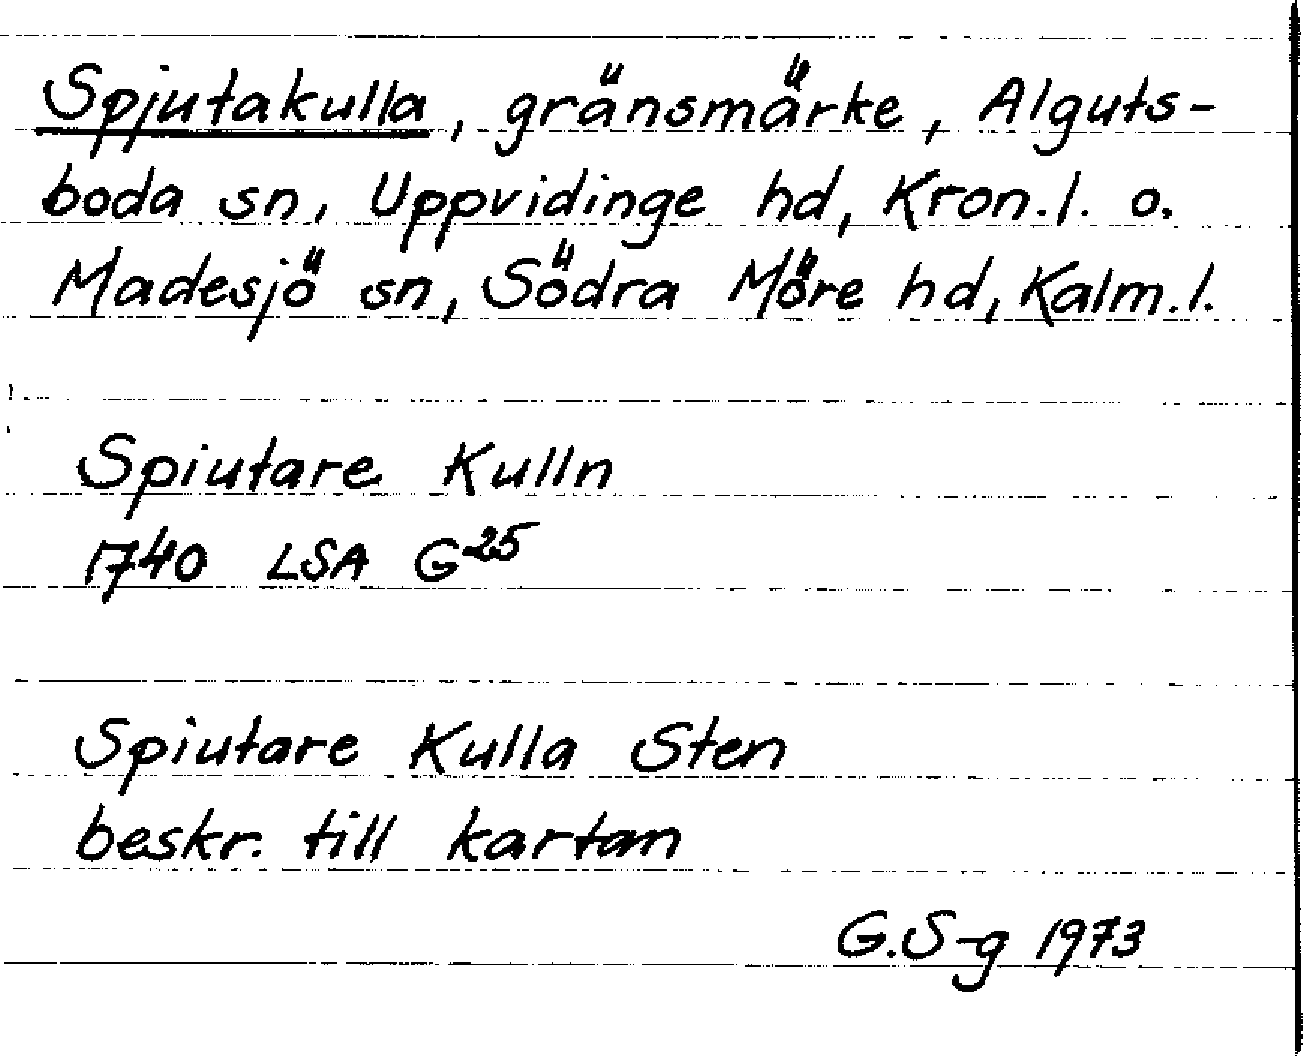 Spjutakulla, gränsmärke, Alguts-
boda sn, Uppvidinge hd, Kron.l. o.
Madesjö sn, Södra Möre hd, Kalm.l.
Spiutare Kulln
1740 LSA G25
Spiutare Kulla Sten
beskr. till kartan
G.S-g 1973